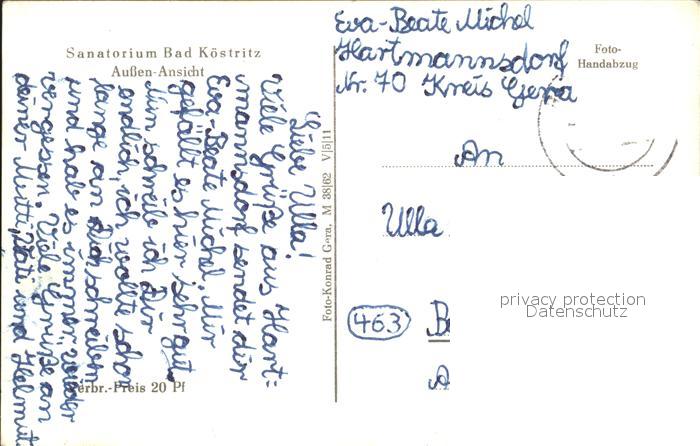 Sanatorium Bad Köstritz
Außen-Ansicht
Liebe Ulla!
Viele Grüße aus Hart=
mannsdorf sendet dir
Eva-Beate Michel. Mir
gefällt es hier sehr gut.
Nun schreib ich Dir
endlich, ich wollte schon
lange an Dich schreiben
und hab es immer wieder
vergessen. Viele Grüße an
deiner Mutti, Vati und Helmut
Verbr.-Preis 20 Pf
Foto-Konrad Gera, M 38/62 V/5/11
Eva-Beate Michel
Hartmannsdorf
Nr. 70 Kreis Gera
Foto-
Handabzug
An
Ulla
463 B
A
privacy protection
Datenschutz